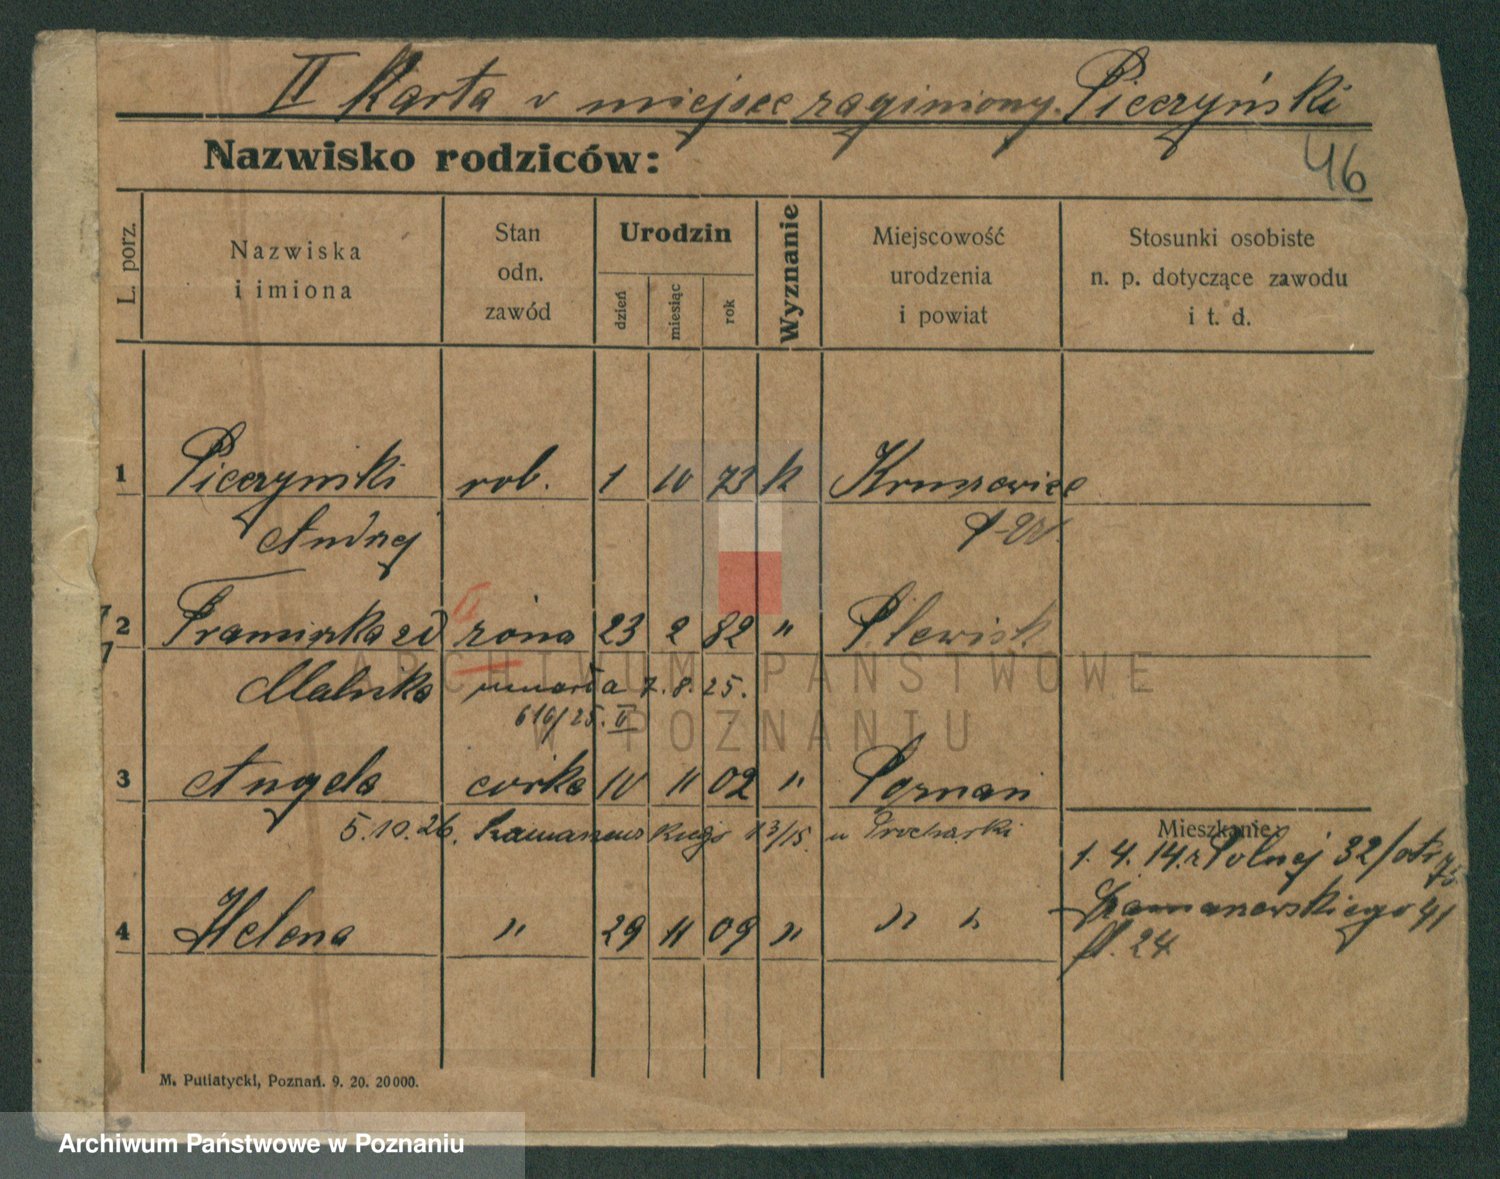 II Karta w miejsce zaginionej. Pieczyński
Nazwisko rodziców:
46
L. porz.
Nazwiska
i imiona
Stan
odn.
zawód
Urodzin
dzień
miesiąc
rok
Wyznanie
Miejscowość
urodzenia
i powiat
Stosunki osobiste
n. p. dotyczące zawodu
i t. d.
1 Pieczyński rob. 1 10 73 k
Andrzej
II
2 Franciszka zd żona 23 2 82 "
Malicka umarła 7.8.25.
616/25. II
3 Angela córka 10 11 02 " Poznań
5.10.26. 13/15. u
Mieszkanie:
1. 4. 14. Polnej 32/
4 Helena " 29 11 09 " " "
41
24
M. Putiatycki, Poznań. 9. 20. 20000.
ARCHIWUM PAŃSTWOWE
W POZNANIU
Archiwum Państwowe w Poznaniu